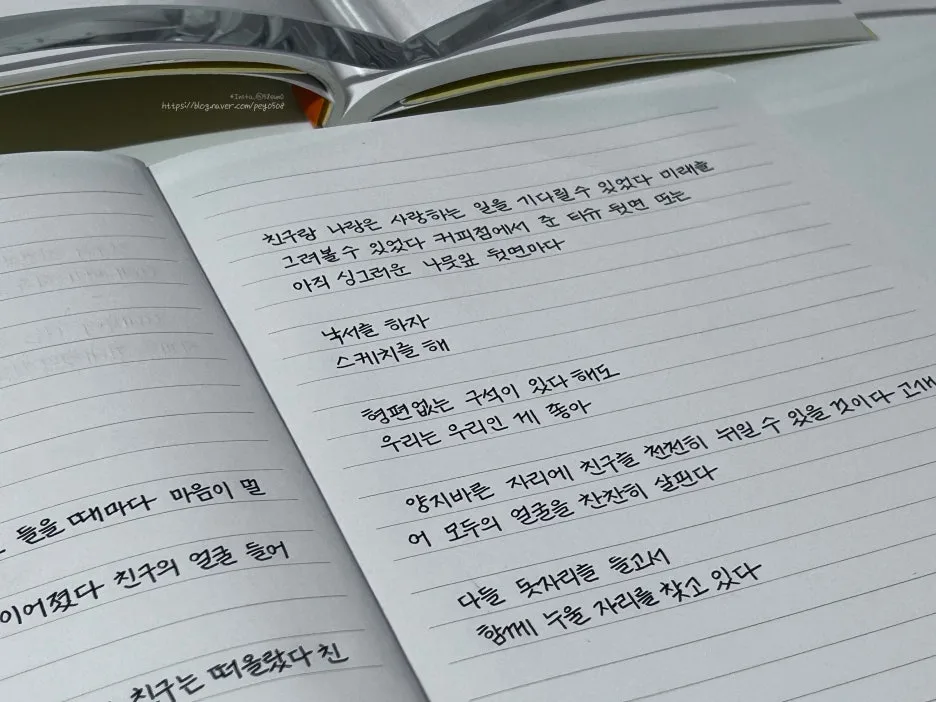 https://blog.naver.com/pey0508
들을 때마다 마음이 멀
이어졌다 친구의 얼굴 들어
친구는 떠올랐다 친
친구랑 나랑은 사랑하는 일을 기다릴 수 있었다 미래를
그려볼 수 있었다 커피점에서 준 티슈 뒷면 또는
아직 싱그러운 나뭇잎 뒷면마다
낙서를 하자
스케치를 해
형편없는 구석이 있다 해도
우리는 우리인 게 좋아
양지바른 자리에 친구를 천천히 뉘일 수 있을 것이다 고개
어 모두의 얼굴을 찬찬히 살핀다
다들 돗자리를 들고서
함께 누울 자리를 찾고 있다